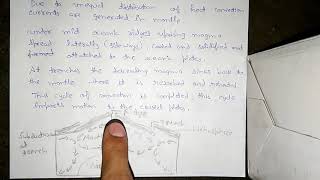 Due to unequal distribution of heat convection
currents are generated in mantle.
under mid oceanic ridges uprising magma
spread laterally (sideways), cooled and solidified and
formed attached to the ocean's plates.
At trenches the descending magma sinks back to
the mantle. where it is reheated and
This cycle of convection is completed this cycle
imparts motion to the crustal plates.
Ridge
Subduction
at
trench